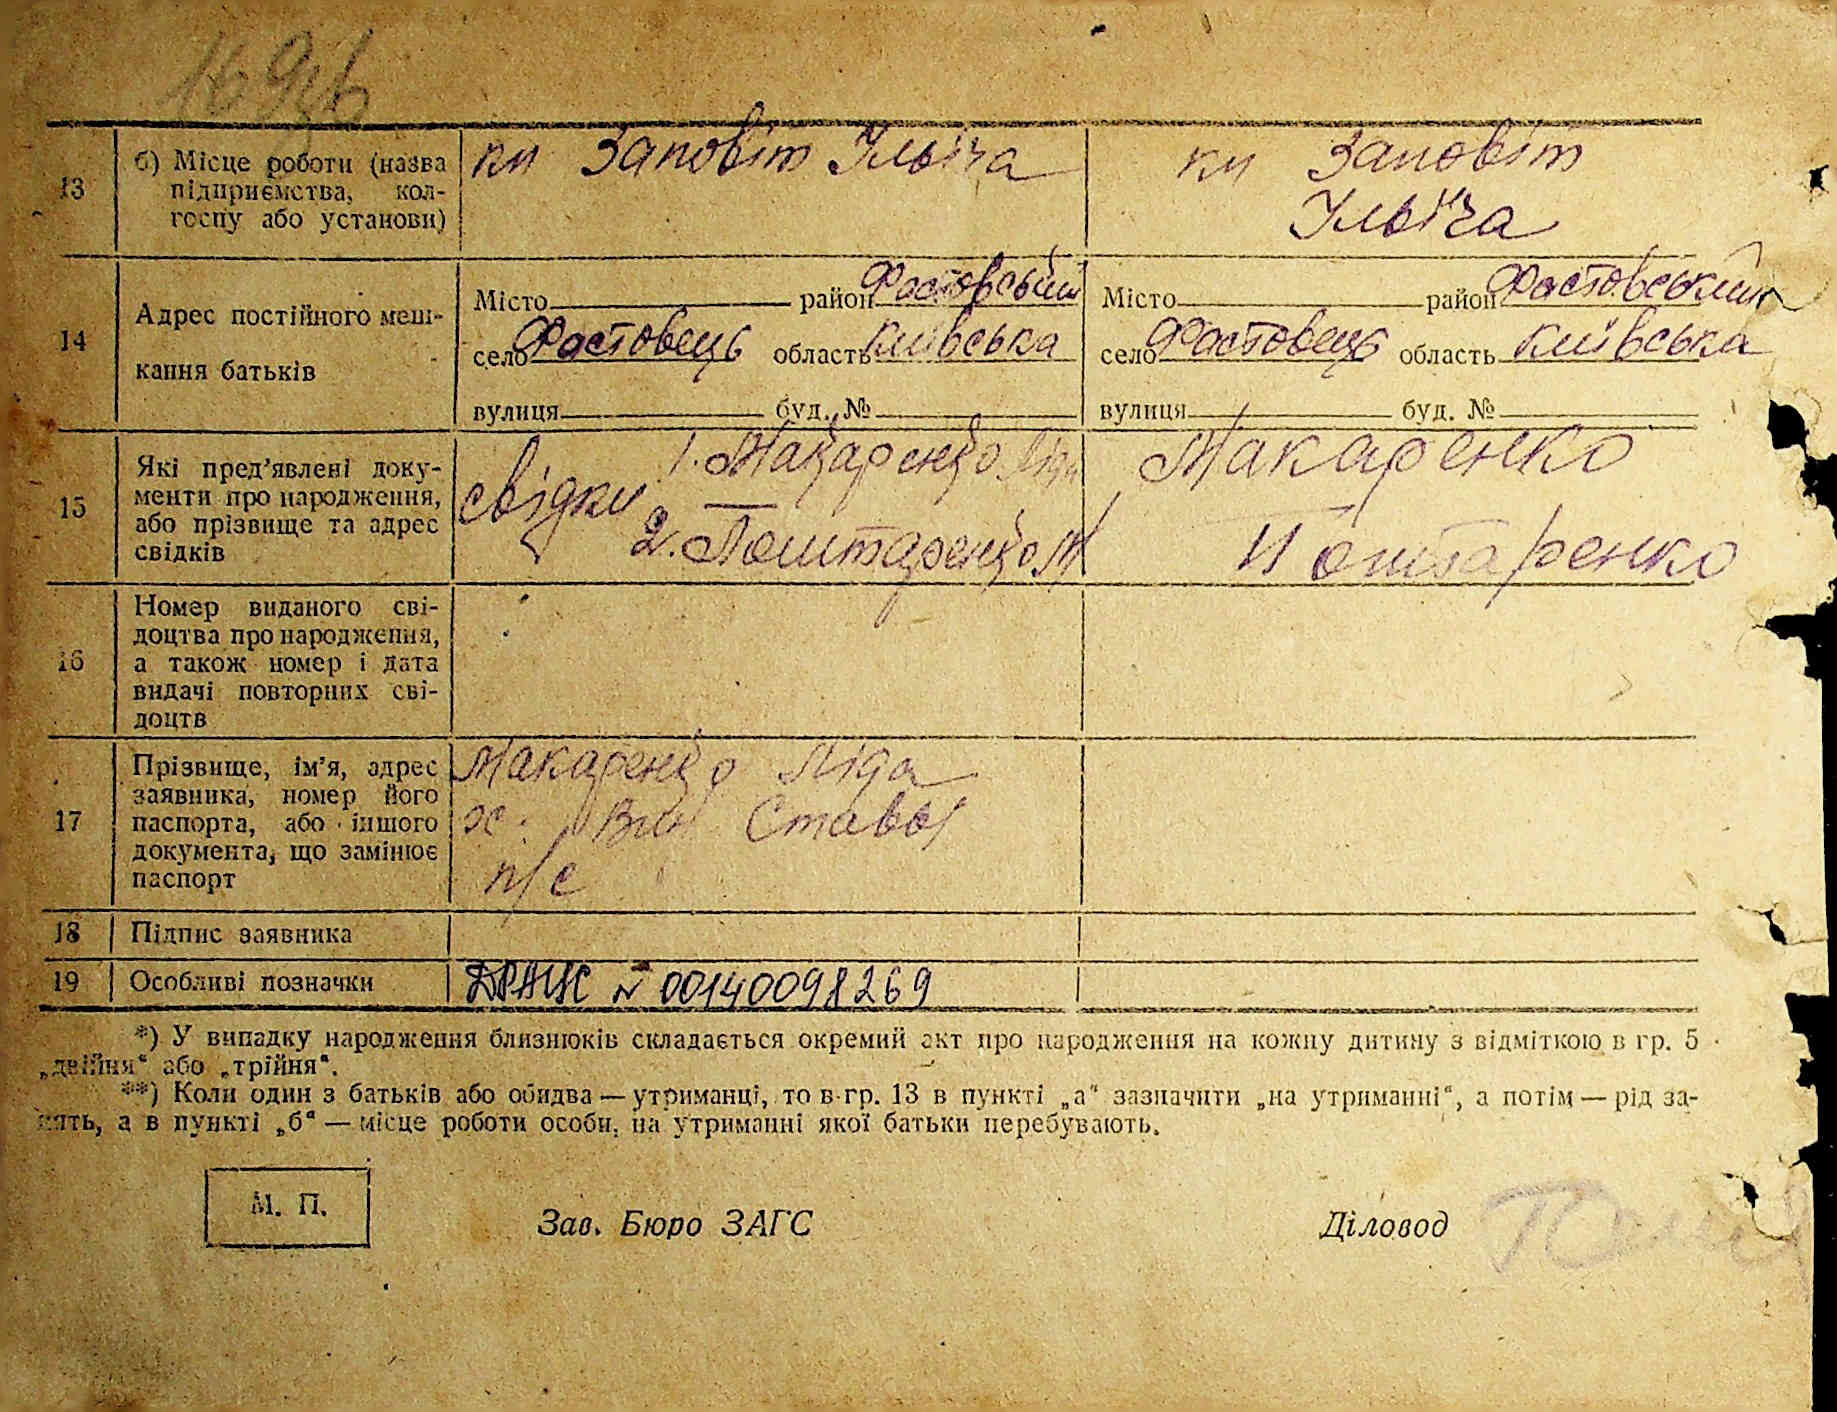 13
б) Місце роботи (назва
підприємства, кол-
госпу або установи)
кп Заповіт Ільіча
кп Заповіт
Ільіча
14
Адрес постійного меш-
кання батьків
Місто район Фастовський
село Фастовець область київська
вулиця буд. №
Місто район Фастовський
село Фастовець область київська
вулиця буд. №
15
Які пред’явлені доку-
менти про народження,
або прізвище та адрес
свідків
свідки
1. Макаренко Ліда
2. Поштаренко М
Макаренко
Поштаренко
16
Номер виданого сві-
доцтва про народження,
а також номер і дата
видачі повторних сві-
доцтв
17
Прізвище, ім’я, адрес
заявника, номер його
паспорта, або іншого
документа, що замінює
паспорт
Макаренко Ліда
Стави
п/с
18
Підпис заявника
19
Особливі позначки
ДРАЦС № 00140098269
*) У випадку народження близнюків складається окремий акт про народження на кожну дитину з відміткою в гр. 5
„двійня“ або „трійня“.
**) Коли один з батьків або обидва — утриманці, то в гр. 13 в пункті „а“ зазначити „на утриманні“, а потім — рід за-
нять, а в пункті „б“ — місце роботи особи, на утриманні якої батьки перебувають.
М. П.
Зав. Бюро ЗАГС
Діловод